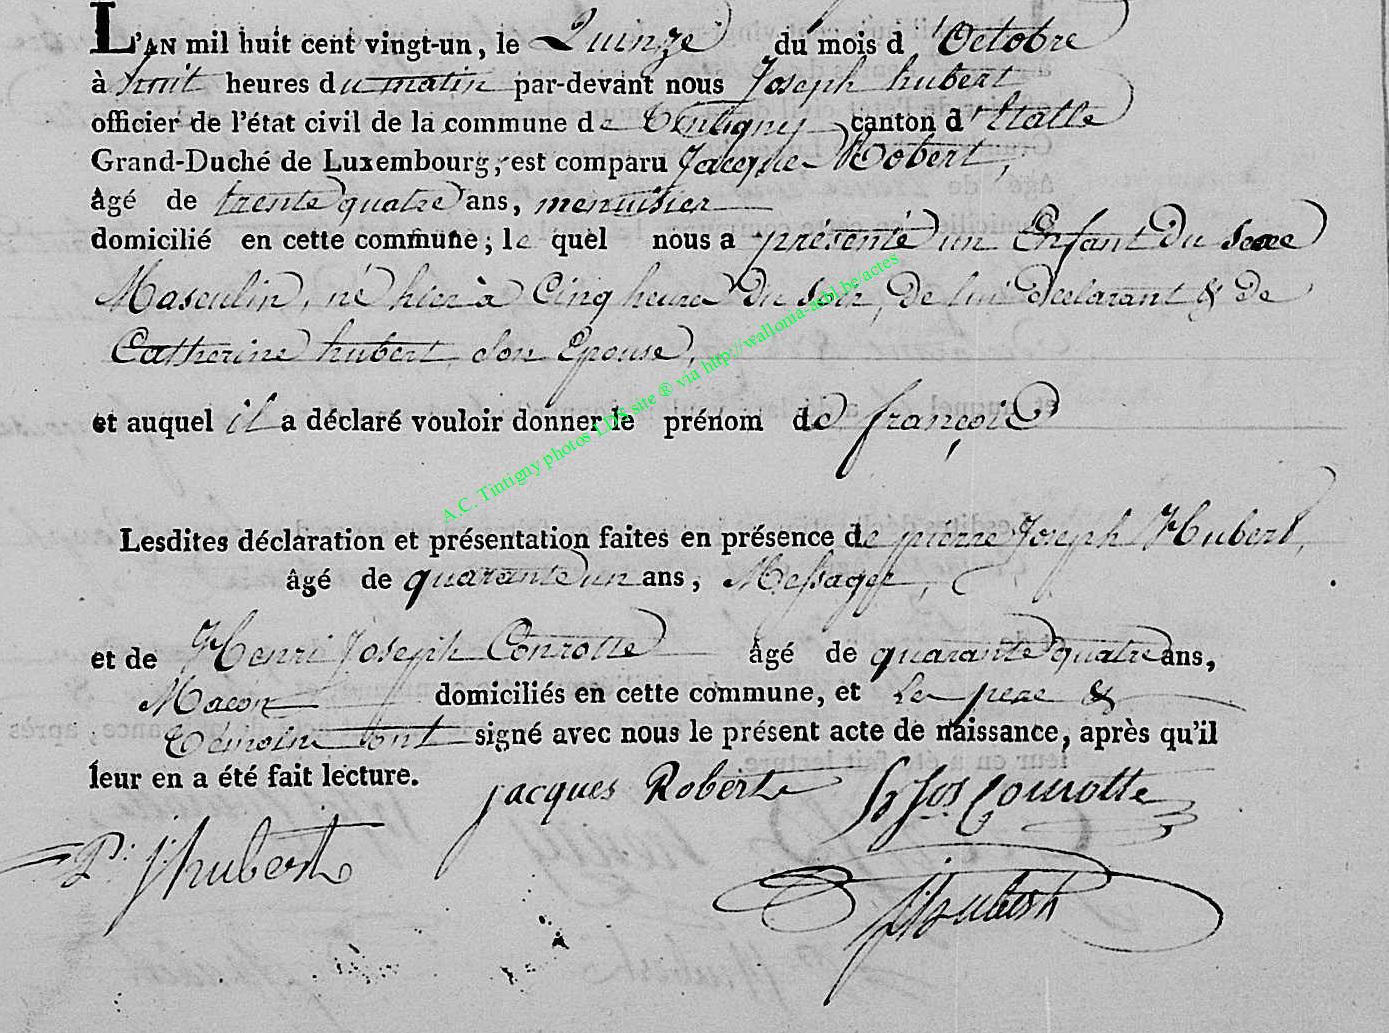 L'AN mil huit cent vingt-un, le Quinze du mois d'Octobre
à huit heures du matin par-devant nous Joseph hubert
officier de l'état civil de la commune de Tintigny canton d'Etalle
Grand-Duché de Luxembourg, est comparu Jacque Robert,
âgé de trente quatre ans, menuisier
domicilié en cette commune; le quel nous a présenté un Enfant Du Sexe
Masculin, né hier à Cinq heure Du Soir, De lui Declarant & De
Catherine hubert Son Epouse,
et auquel il a déclaré vouloir donner le prénom de françois
A.C. Tintigny photos LDS site ® via http://wallonia-asbl.be/actes
Lesdites déclaration et présentation faites en présence de pierre Joseph Hubert,
âgé de quarante un ans, Messager,
et de Henri Joseph Conrotte âgé de quarante quatre ans,
Macon domiciliés en cette commune, et Le pere &
Temoins ont signé avec nous le présent acte de naissance, après qu'il
leur en a été fait lecture.
jacques Robert hJos Conrotte
P: J hubert
J Hubert